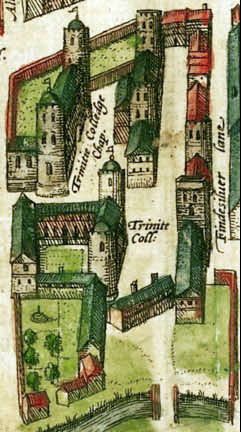 Trinitie Colledge
Chap:
Trinite
Coll:
Findesiluer lane